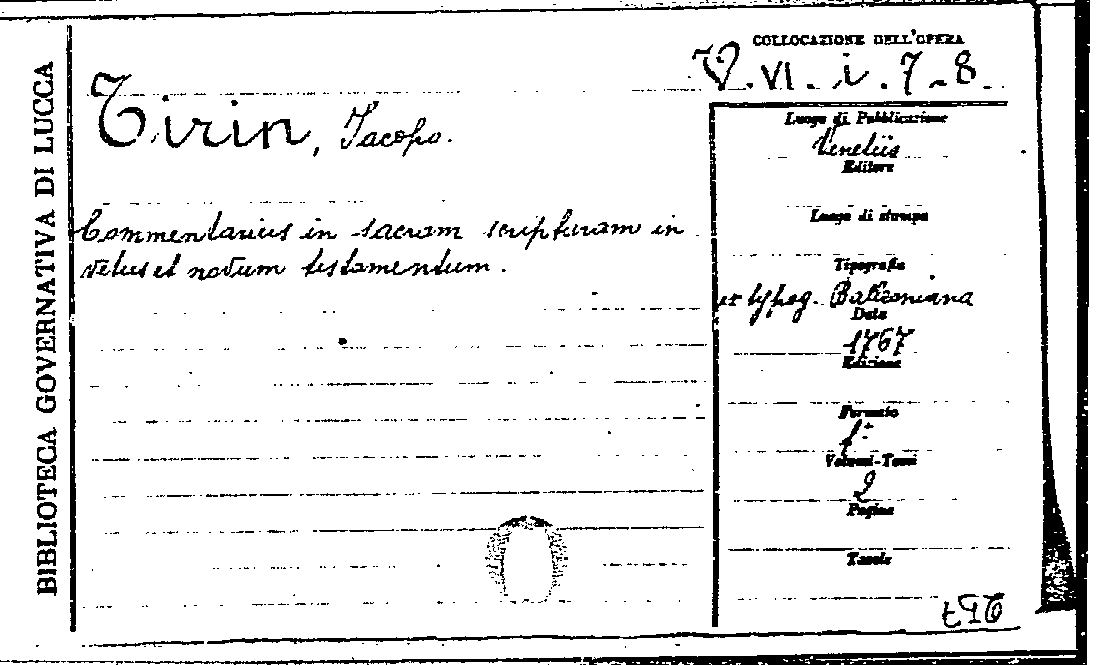 BIBLIOTECA GOVERNATIVA DI LUCCA
Tirin, Jacopo.
Commentarius in sacram scripturam in
vetus et novum testamentum.
COLLOCAZIONE DELL'OPERA
V. VI. i. 7-8.
Luogo di Pubblicazione
Venetiis
Editore
Luogo di stampa
Tipografia
ex typog. Balleoniana
Data
1767
Edizione
Formato
f:
Volumi-Tomi
2
Pagine
Tavole